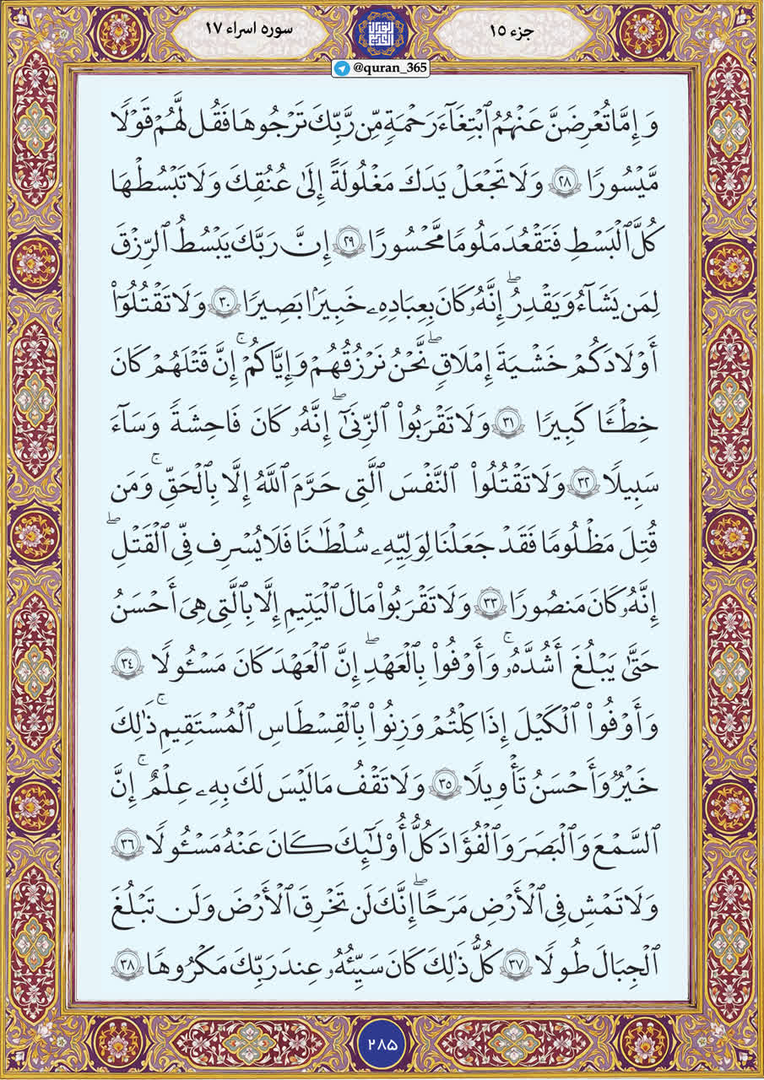 جزء ۱۵
سوره اسراء ۱۷
@quran_365
وَإِمَّا تُعْرِضَنَّ عَنْهُمُ ٱبْتِغَآءَ رَحْمَةٍ مِّن رَّبِّكَ تَرْجُوهَا فَقُل لَّهُمْ قَوْلًا
مَّيْسُورًا ﴿۲۸﴾ وَلَا تَجْعَلْ يَدَكَ مَغْلُولَةً إِلَىٰ عُنُقِكَ وَلَا تَبْسُطْهَا
كُلَّ ٱلْبَسْطِ فَتَقْعُدَ مَلُومًا مَّحْسُورًا ﴿۲۹﴾ إِنَّ رَبَّكَ يَبْسُطُ ٱلرِّزْقَ
لِمَن يَشَآءُ وَيَقْدِرُ ۖ إِنَّهُۥ كَانَ بِعِبَادِهِۦ خَبِيرًۢا بَصِيرًا ﴿۳۰﴾ وَلَا تَقْتُلُوٓا۟
أَوْلَادَكُمْ خَشْيَةَ إِمْلَاقٍ ۖ نَّحْنُ نَرْزُقُهُمْ وَإِيَّاكُمْ ۚ إِنَّ قَتْلَهُمْ كَانَ
خِطْـًٔا كَبِيرًا ﴿۳۱﴾ وَلَا تَقْرَبُوا۟ ٱلزِّنَىٰٓ ۖ إِنَّهُۥ كَانَ فَاحِشَةً وَسَآءَ
سَبِيلًا ﴿۳۲﴾ وَلَا تَقْتُلُوا۟ ٱلنَّفْسَ ٱلَّتِى حَرَّمَ ٱللَّهُ إِلَّا بِٱلْحَقِّ ۗ وَمَن
قُتِلَ مَظْلُومًا فَقَدْ جَعَلْنَا لِوَلِيِّهِۦ سُلْطَـٰنًا فَلَا يُسْرِف فِّى ٱلْقَتْلِ ۖ
إِنَّهُۥ كَانَ مَنصُورًا ﴿۳۳﴾ وَلَا تَقْرَبُوا۟ مَالَ ٱلْيَتِيمِ إِلَّا بِٱلَّتِى هِىَ أَحْسَنُ
حَتَّىٰ يَبْلُغَ أَشُدَّهُۥ ۚ وَأَوْفُوا۟ بِٱلْعَهْدِ ۖ إِنَّ ٱلْعَهْدَ كَانَ مَسْـُٔولًا ﴿۳۴﴾
وَأَوْفُوا۟ ٱلْكَيْلَ إِذَا كِلْتُمْ وَزِنُوا۟ بِٱلْقِسْطَاسِ ٱلْمُسْتَقِيمِ ۚ ذَٰلِكَ
خَيْرٌ وَأَحْسَنُ تَأْوِيلًا ﴿۳۵﴾ وَلَا تَقْفُ مَا لَيْسَ لَكَ بِهِۦ عِلْمٌ ۚ إِنَّ
ٱلسَّمْعَ وَٱلْبَصَرَ وَٱلْفُؤَادَ كُلُّ أُو۟لَـٰٓئِكَ كَانَ عَنْهُ مَسْـُٔولًا ﴿۳۶﴾
وَلَا تَمْشِ فِى ٱلْأَرْضِ مَرَحًا ۖ إِنَّكَ لَن تَخْرِقَ ٱلْأَرْضَ وَلَن تَبْلُغَ
ٱلْجِبَالَ طُولًا ﴿۳۷﴾ كُلُّ ذَٰلِكَ كَانَ سَيِّئُهُۥ عِندَ رَبِّكَ مَكْرُوهًا ﴿۳۸﴾
۲۸۵